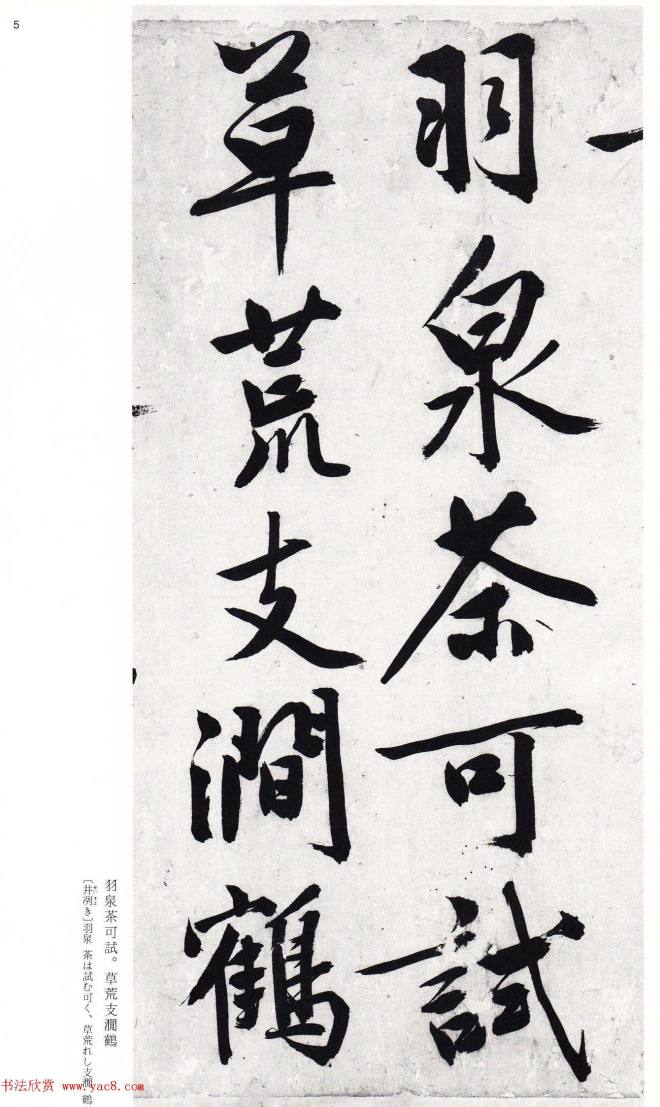 5
羽泉茶可試
草荒支澗鶴
羽泉茶可試。草荒支澗鶴
〔井冽き〕羽泉 茶は試む可く、草荒れし支澗 鶴
书法欣赏 www.yac8.com